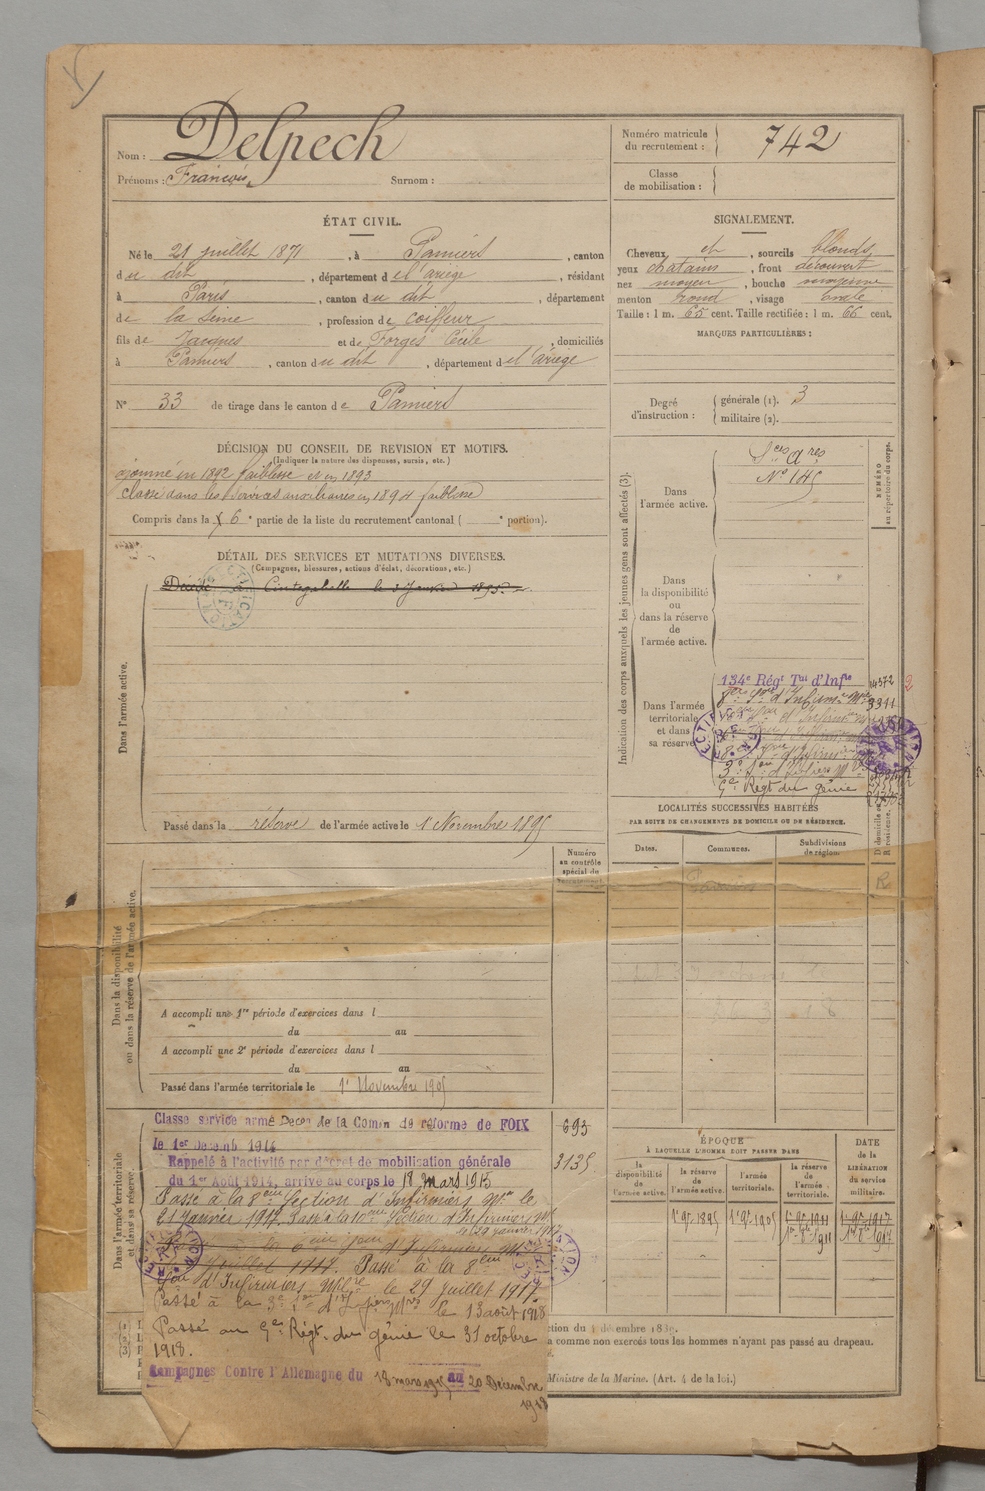 Nom : Delpech
Prénoms : François, Surnom :
Numéro matricule du recrutement : 742
Classe de mobilisation :
ÉTAT CIVIL.
Né le 21 juillet 1871, à Pamiers, canton
du dit, département de l'ariège, résidant
à Paris, canton du dit, département
de la Seine, profession de coiffeur
fils de Jacques et de Forges Cécile, domiciliés
à Pamiers, canton du dit, département de l'ariège
N° 33 de tirage dans le canton de Pamiers
SIGNALEMENT.
Cheveux et, sourcils blonds
yeux chatains, front découvert
nez moyen, bouche moyenne
menton rond, visage ovale
Taille : 1 m. 65 cent. Taille rectifiée : 1 m. 66 cent.
MARQUES PARTICULIÈRES :
Degré d'instruction : générale (1). 3
militaire (2).
DÉCISION DU CONSEIL DE REVISION ET MOTIFS.
(Indiquer la nature des dispenses, sursis, etc.)
ajourné en 1892 faiblesse et en 1893
classé dans les services auxiliaires en 1894 faiblesse
Compris dans la 6e partie de la liste du recrutement cantonal ( e portion).
DÉTAIL DES SERVICES ET MUTATIONS DIVERSES.
(Campagnes, blessures, actions d'éclat, décorations, etc.)
Décédé à Cintegabelle le 3 Janvier 1895
Dans l'armée active.
Passé dans la réserve de l'armée active le 1er Novembre 1895
Indication des corps auxquels les jeunes gens sont affectés (3).
NUMÉRO au répertoire du corps.
Dans l'armée active.
Sces ares
N° 145
Dans la disponibilité ou dans la réserve de l'armée active.
Dans l'armée territoriale et dans sa réserve
134e Régt Tal d'Infie
3311
3e Son d'Infiers Mres
5e Régt du génie
LOCALITÉS SUCCESSIVES HABITÉES
PAR SUITE DE CHANGEMENTS DE DOMICILE OU DE RÉSIDENCE.
Dates. Communes. Subdivisions de région. D. domicile ou R. résidence.
Pamiers R
Dans la disponibilité ou dans la réserve de l'armée active.
Numéro au contrôle spécial de recrutement
A accompli une 1re période d'exercices dans l
du au
A accompli une 2e période d'exercices dans l
du au
Passé dans l'armée territoriale le 1er Novembre 1905
Dans l'armée territoriale et dans sa réserve.
Classé service armé Décon de la Comon de réforme de FOIX
le 1er Décemb 1914
693
Rappelé à l'activité par décret de mobilisation générale
3135
du 1er Août 1914, arrivé au corps le 18 mars 1915
Passé à la 8eme Section d'Infirmiers Mres le
21 Janvier 1917. Passé à la 10eme Section d'Infirmiers Mres
le 29 janvier 1917
Passé à la 8eme
Son d'Infirmiers Mlre le 29 juillet 1917.
Passé à la 3e Son d'Infiers Mres le 13 août 1918
Passé au 5e Régt. du génie le 31 octobre
1918.
Campagnes Contre l'Allemagne du 18 mars 1915 au 20 Décembre
1918
ÉPOQUE
À LAQUELLE L'HOMME DOIT PASSER DANS
la disponibilité de l'armée active. la réserve de l'armée active. l'armée territoriale. la réserve de l'armée territoriale.
DATE de la LIBÉRATION du service militaire.
1er 9bre 1895 1er 9bre 1905 1er 9bre 1911 1er 9bre 1917
1er 8bre 1911 1er 8bre 1917
a comme non exercés tous les hommes n'ayant pas passé au drapeau.
Ministre de la Marine. (Art. 4 de la loi.)